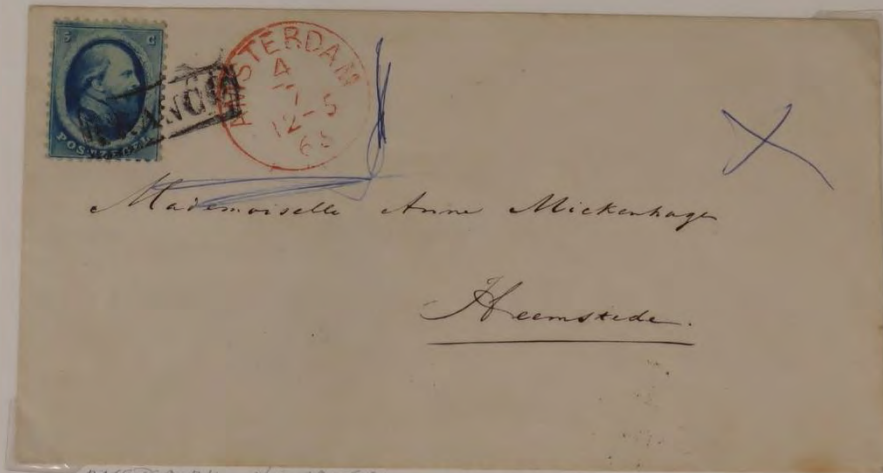 5 C
POSTZEGEL
FRANCO
AMSTERDAM
4
7-5
12-
Mademoiselle Anna Mickenhagen
Heemstede.